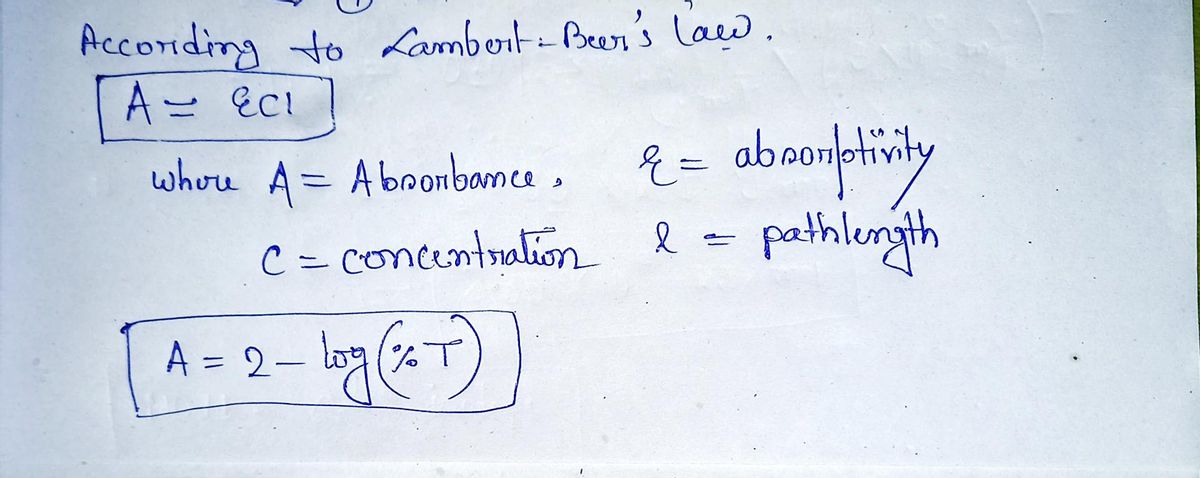 According to Lambert-Beer's law.
A = εCl
where A = Absorbance, ε = absorptivity
C = concentration l = pathlength
A = 2 - log(%T)